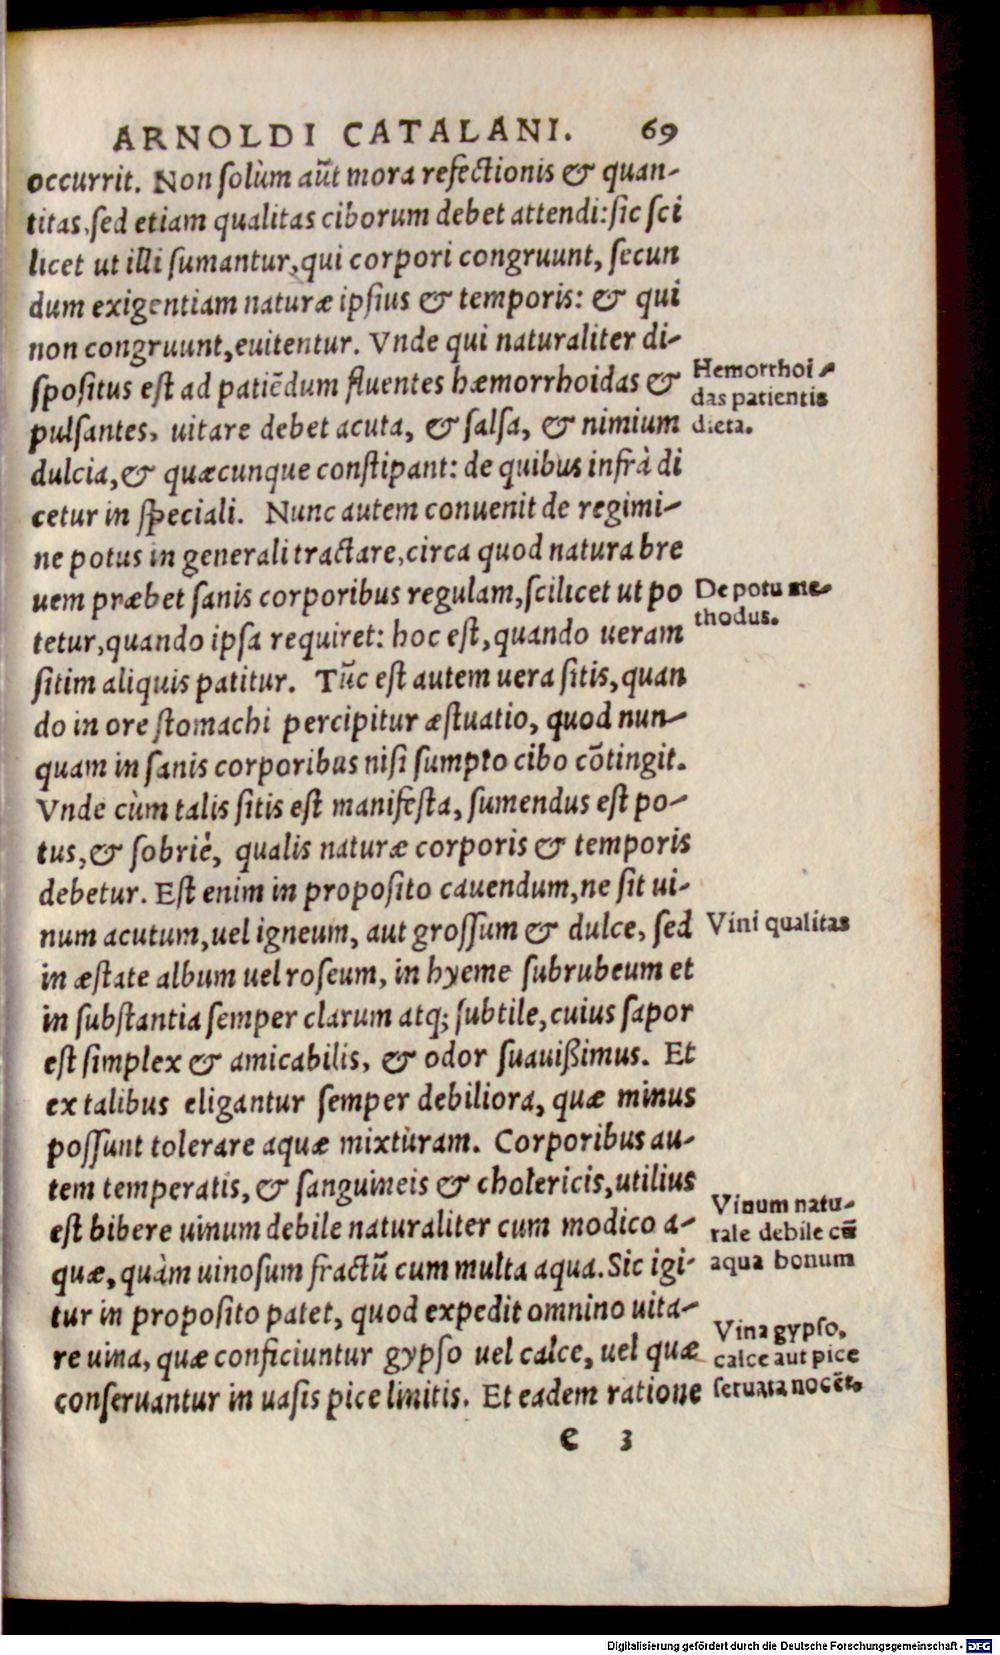 ARNOLDI CATALANI. 69
occurrit. Non ſolùm aūt mora refectionis & quan-
titas, ſed etiam qualitas ciborum debet attendi: ſic ſci
licet ut illi ſumantur, qui corpori congruunt, ſecun
dum exigentiam naturæ ipſius & temporis: & qui
non congruunt, euitentur. Vnde qui naturaliter di-
ſpoſitus eſt ad patiēdum fluentes hæmorrhoidas &
pulſantes, uitare debet acuta, & ſalſa, & nimium
dulcia, & quæcunque conſtipant: de quibus infrà di
cetur in ſpeciali. Nunc autem conuenit de regimi-
ne potus in generali tractare, circa quod natura bre
uem præbet ſanis corporibus regulam, ſcilicet ut po
tetur, quando ipſa requiret: hoc eſt, quando ueram
ſitim aliquis patitur. Tūc eſt autem uera ſitis, quan
do in ore ſtomachi percipitur æſtuatio, quod nun-
quam in ſanis corporibus niſi ſumpto cibo cōtingit.
Vnde cùm talis ſitis eſt manifeſta, ſumendus eſt po-
tus, & ſobriè, qualis naturæ corporis & temporis
debetur. Eſt enim in propoſito cauendum, ne ſit ui-
num acutum, uel igneum, aut groſſum & dulce, ſed
in æſtate album uel roſeum, in hyeme ſubrubeum et
in ſubſtantia ſemper clarum atq; ſubtile, cuius ſapor
eſt ſimplex & amicabilis, & odor ſuauißimus. Et
ex talibus eligantur ſemper debiliora, quæ minus
poſſunt tolerare aquæ mixtùram. Corporibus au-
tem temperatis, & ſanguineis & cholericis, utilius
eſt bibere uinum debile naturaliter cum modico a-
quæ, quàm uinoſum fractū cum multa aqua. Sic igi-
tur in propoſito patet, quod expedit omnino uita-
re uina, quæ conficiuntur gypſo uel calce, uel quæ
conſeruantur in uaſis pice linitis. Et eadem ratione
Hemorrhoi-
das patientis
dieta.
De potu me-
thodus.
Vini qualitas
Vinum natu-
rale debile cū
aqua bonum
Vina gypſo,
calce aut pice
ſeruata nocēt.
e 3
Digitalisierung gefördert durch die Deutsche Forschungsgemeinschaft - DFG